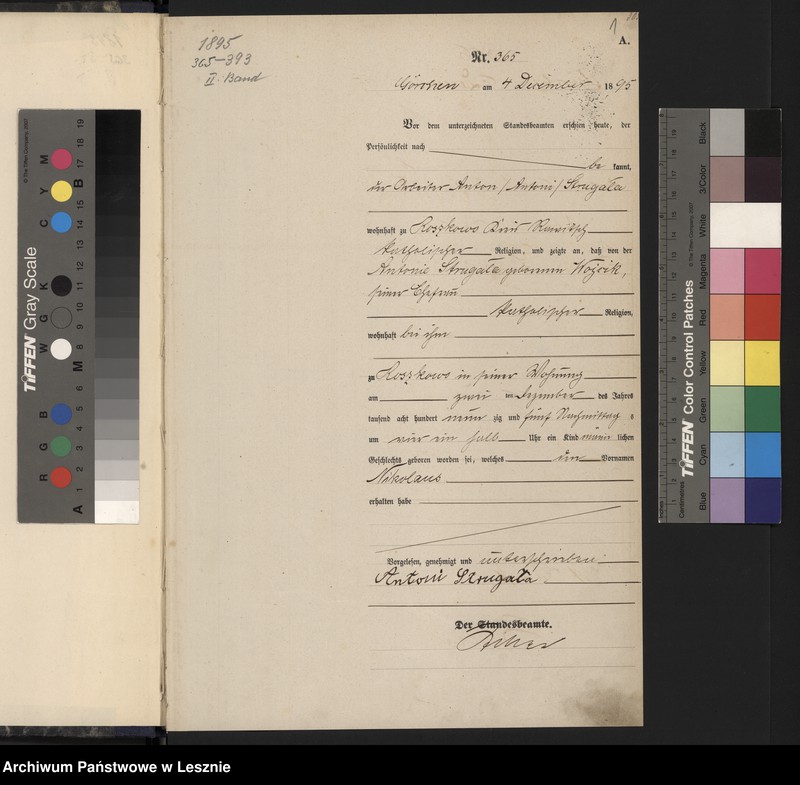 1895
365-393
II. Band
1
A.
Nr. 365
Görchen am 4 December 1895
Vor dem unterzeichneten Standesbeamten erschien heute, der
Persönlichkeit nach
be kannt,
der Arbeiter Anton /Antoni/ Strugała
wohnhaft zu Roszkowo Kreis Rawitsch
katholischer Religion, und zeigte an, daß von der
Antonie Strugała geborenen Wojcik,
seiner Ehefrau
katholischer Religion,
wohnhaft bei ihm
zu Roszkowo in seiner Wohnung
am zwei ten Dezember des Jahres
tausend acht hundert neun zig und fünf Nachmittag s
um vier ein halb Uhr ein Kind männ lichen
Geschlechts geboren worden sei, welches den Vornamen
Nikolaus
erhalten habe
Vorgelesen, genehmigt und unterschrieben
Antoni Strugała
Der Standesbeamte.
TIFFEN Gray Scale
© The Tiffen Company, 2007
R G B W G K C Y M
A 1 2 3 4 5 6 M 8 9 10 11 12 13 14 15 B 17 18 19
TIFFEN Color Control Patches
© The Tiffen Company, 2007
Inches
Centimetres
Blue
Cyan
Green
Yellow
Red
Magenta
White
3/Color
Black
Archiwum Państwowe w Lesznie